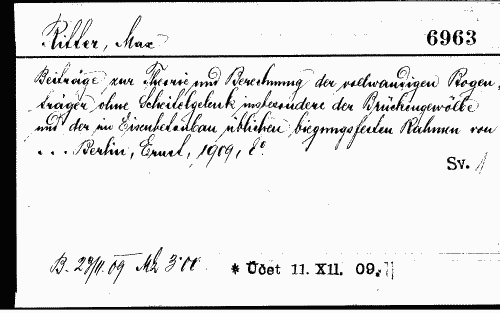 Ritter, Max
6963
Beiträge zur Theorie und Berechnung der vollwandigen Bogen,
träger ohne Scheitelgelenk insbesondere der Brückengewölbe
und der in Eisenbetonbau üblichen biegungsfesten Rahmen von
... Berlin, Ernst, 1909, 8°.
Sv. 1
B. 23/11.09 Mk 3.00. * Účet 11. XII. 09.